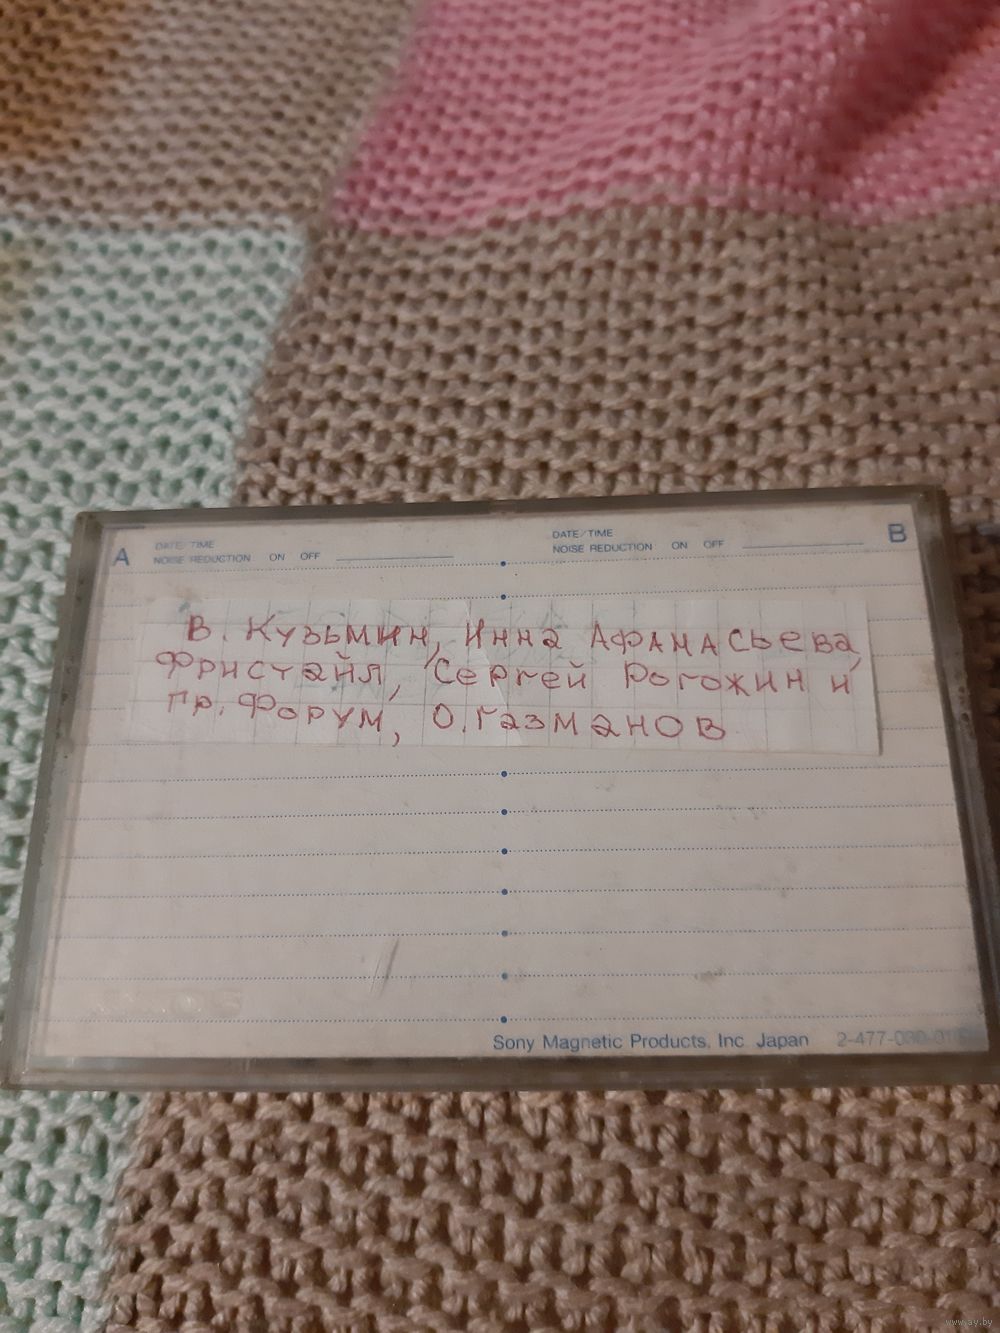 A DATE/TIME
NOISE REDUCTION ON OFF
DATE/TIME B
NOISE REDUCTION ON OFF
В. Кузьмин, Инна Афанасьева,
Фристайл, Сергей Рогожин и
гр. Форум, О. Газманов
Sony Magnetic Products, Inc. Japan
www.ay.by